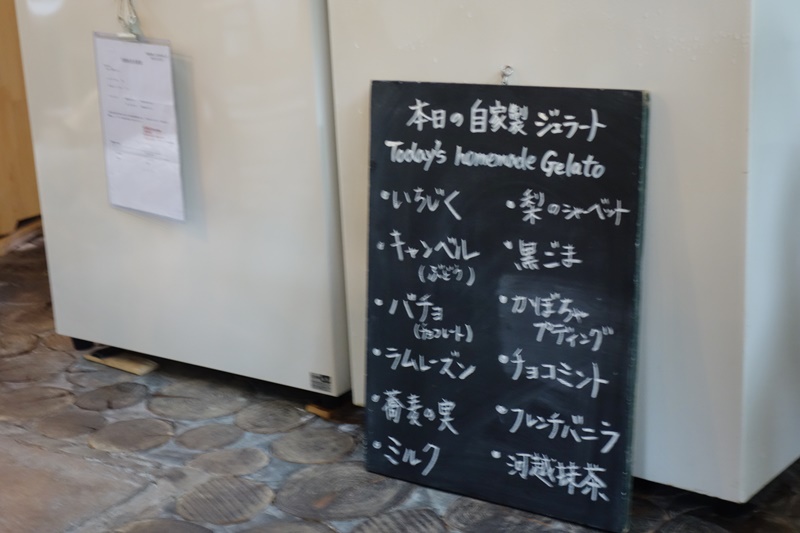 本日の自家製ジェラート
Today's homemade Gelato
・いちじく
・キャンベル
(ぶどう)
・バチョ
(チョコレート)
・ラムレーズン
・蕎麦の実
・ミルク
・梨のシャーベット
・黒ごま
・かぼちゃ
プディング
・チョコミント
・フレンチバニラ
・河越抹茶